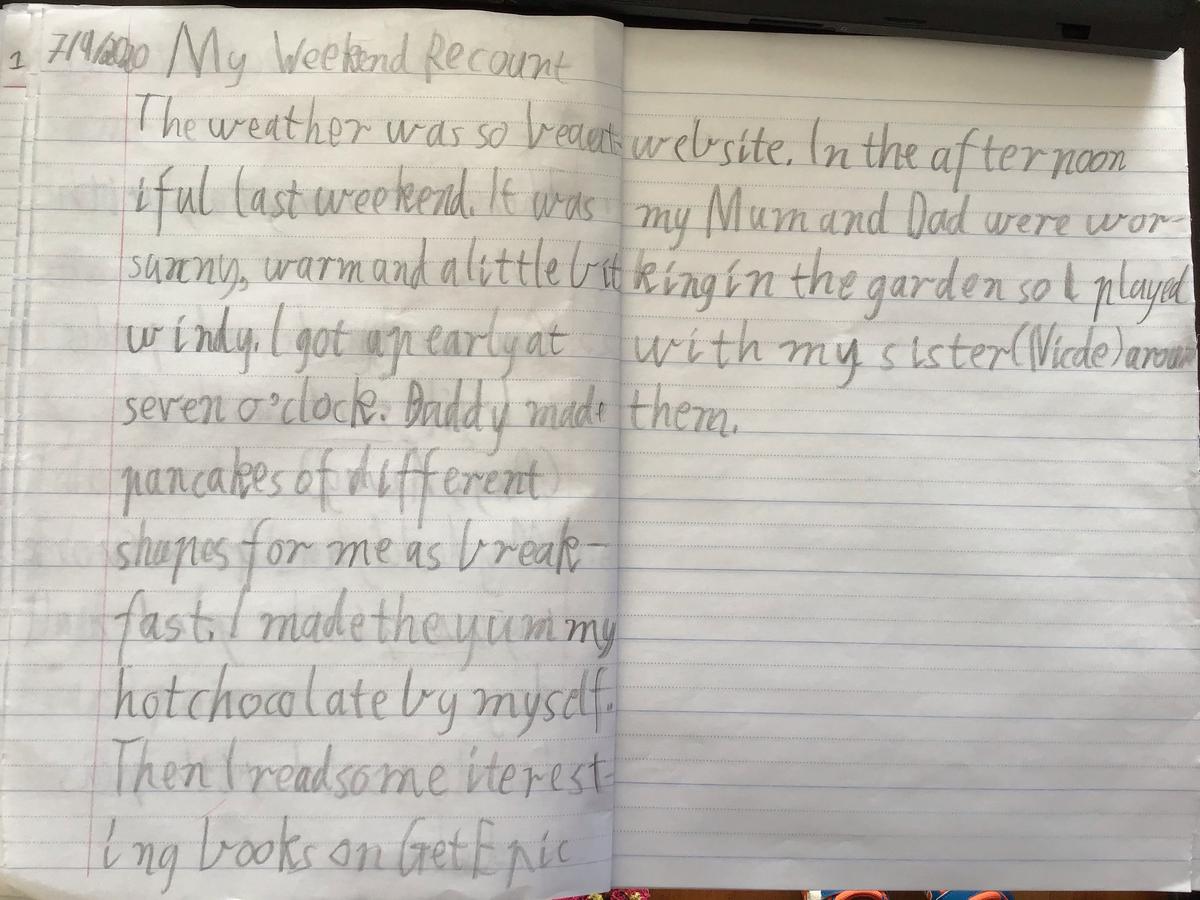 1 7/9/2020 My Weekend Recount
The weather was so beaut-
iful last weekend. It was
sunny, warm and a little bit
windy. I got up early at
seven o'clock. Daddy made
pancakes of different
shapes for me as break-
fast. I made the yummy
hot chocolate by myself.
Then I read some iterest-
ing books on Get Epic
website. In the afternoon
my Mum and Dad were wor-
king in the garden so I played
with my sister (Nicole) around
them.